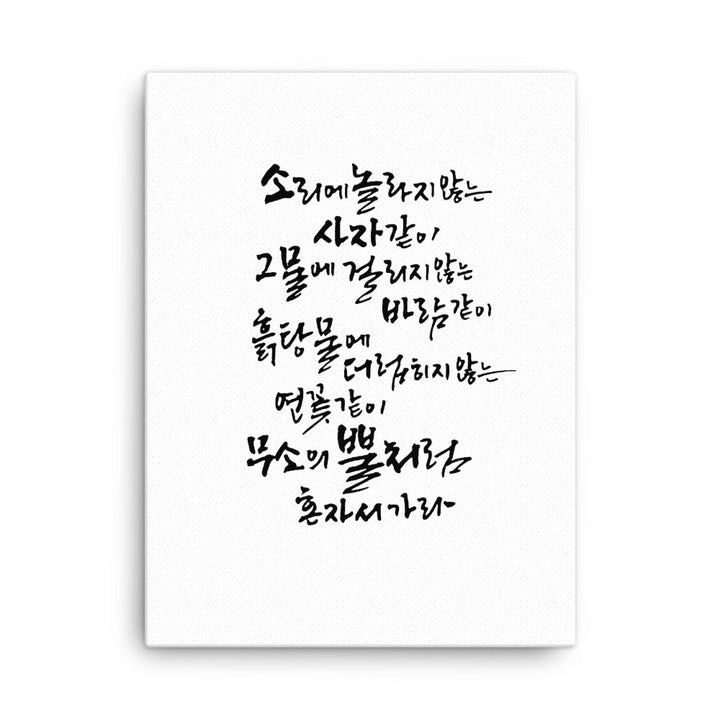 소리에 놀라지 않는
사자같이
그물에 걸리지 않는
바람같이
흙탕물에
더럽히지 않는
연꽃같이
무소의 뿔처럼
혼자서 가라